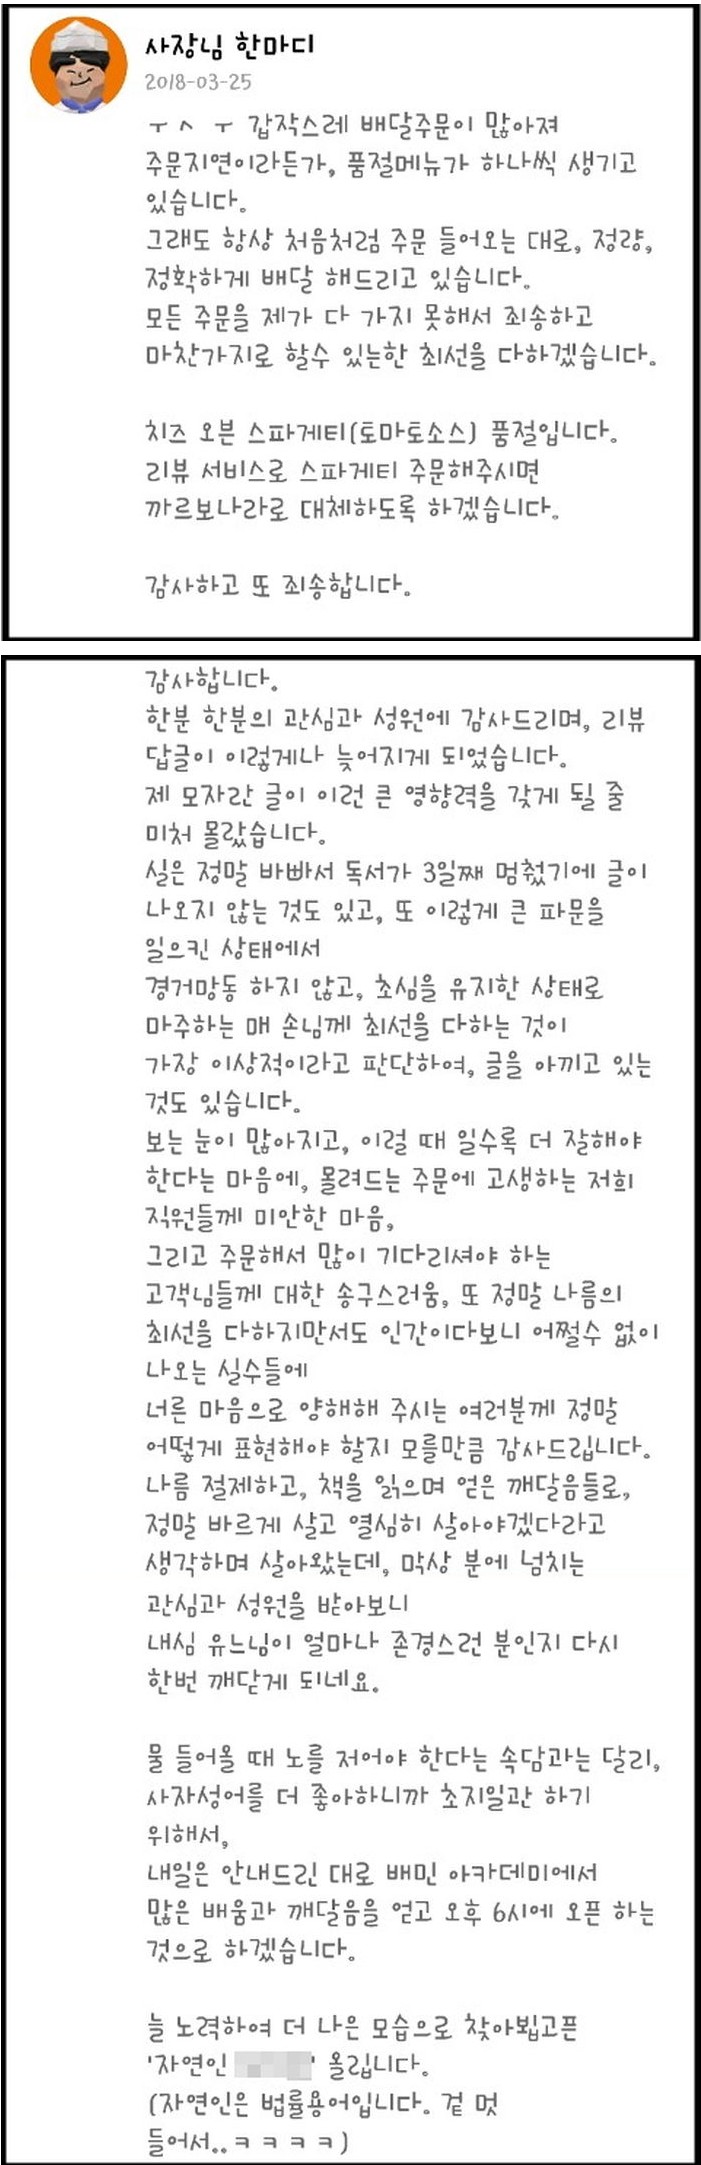 사장님 한마디
2018-03-25
ㅜㅅ ㅜ 갑작스레 배달주문이 많아져
주문지연이라든가, 품절메뉴가 하나씩 생기고
있습니다.
그래도 항상 처음처럼 주문 들어오는 대로, 정량,
정확하게 배달 해드리고 있습니다.
모든 주문을 제가 다 가지 못해서 죄송하고
마찬가지로 할수 있는한 최선을 다하겠습니다.
치즈 오븐 스파게티(토마토소스) 품절입니다.
리뷰 서비스로 스파게티 주문해주시면
까르보나라로 대체하도록 하겠습니다.
감사하고 또 죄송합니다.
감사합니다.
한분 한분의 관심과 성원에 감사드리며, 리뷰
답글이 이렇게나 늦어지게 되었습니다.
제 모자란 글이 이런 큰 영향력을 갖게 될 줄
미처 몰랐습니다.
실은 정말 바빠서 독서가 3일째 멈췄기에 글이
나오지 않는 것도 있고, 또 이렇게 큰 파문을
일으킨 상태에서
경거망동 하지 않고, 초심을 유지한 상태로
마주하는 매 손님께 최선을 다하는 것이
가장 이상적이라고 판단하여, 글을 아끼고 있는
것도 있습니다.
보는 눈이 많아지고, 이럴 때 일수록 더 잘해야
한다는 마음에, 몰려드는 주문에 고생하는 저희
직원들께 미안한 마음,
그리고 주문해서 많이 기다리셔야 하는
고객님들께 대한 송구스러움, 또 정말 나름의
최선을 다하지만서도 인간이다보니 어쩔수 없이
나오는 실수들에
너른 마음으로 양해해 주시는 여러분께 정말
어떻게 표현해야 할지 모를만큼 감사드립니다.
나름 절제하고, 책을 읽으며 얻은 깨달음들로,
정말 바르게 살고 열심히 살아야겠다라고
생각하며 살아왔는데, 막상 분에 넘치는
관심과 성원을 받아보니
내심 유느님이 얼마나 존경스런 분인지 다시
한번 깨닫게 되네요.
물 들어올 때 노를 저어야 한다는 속담과는 달리,
사자성어를 더 좋아하니까 초지일관 하기
위해서,
내일은 안내드린 대로 배민 아카데미에서
많은 배움과 깨달음을 얻고 오후 6시에 오픈 하는
것으로 하겠습니다.
늘 노력하여 더 나은 모습으로 찾아뵙고픈
'자연인 ' 올립니다.
(자연인은 법률용어입니다. 겉 멋
들어서..ㅋㅋㅋㅋ)